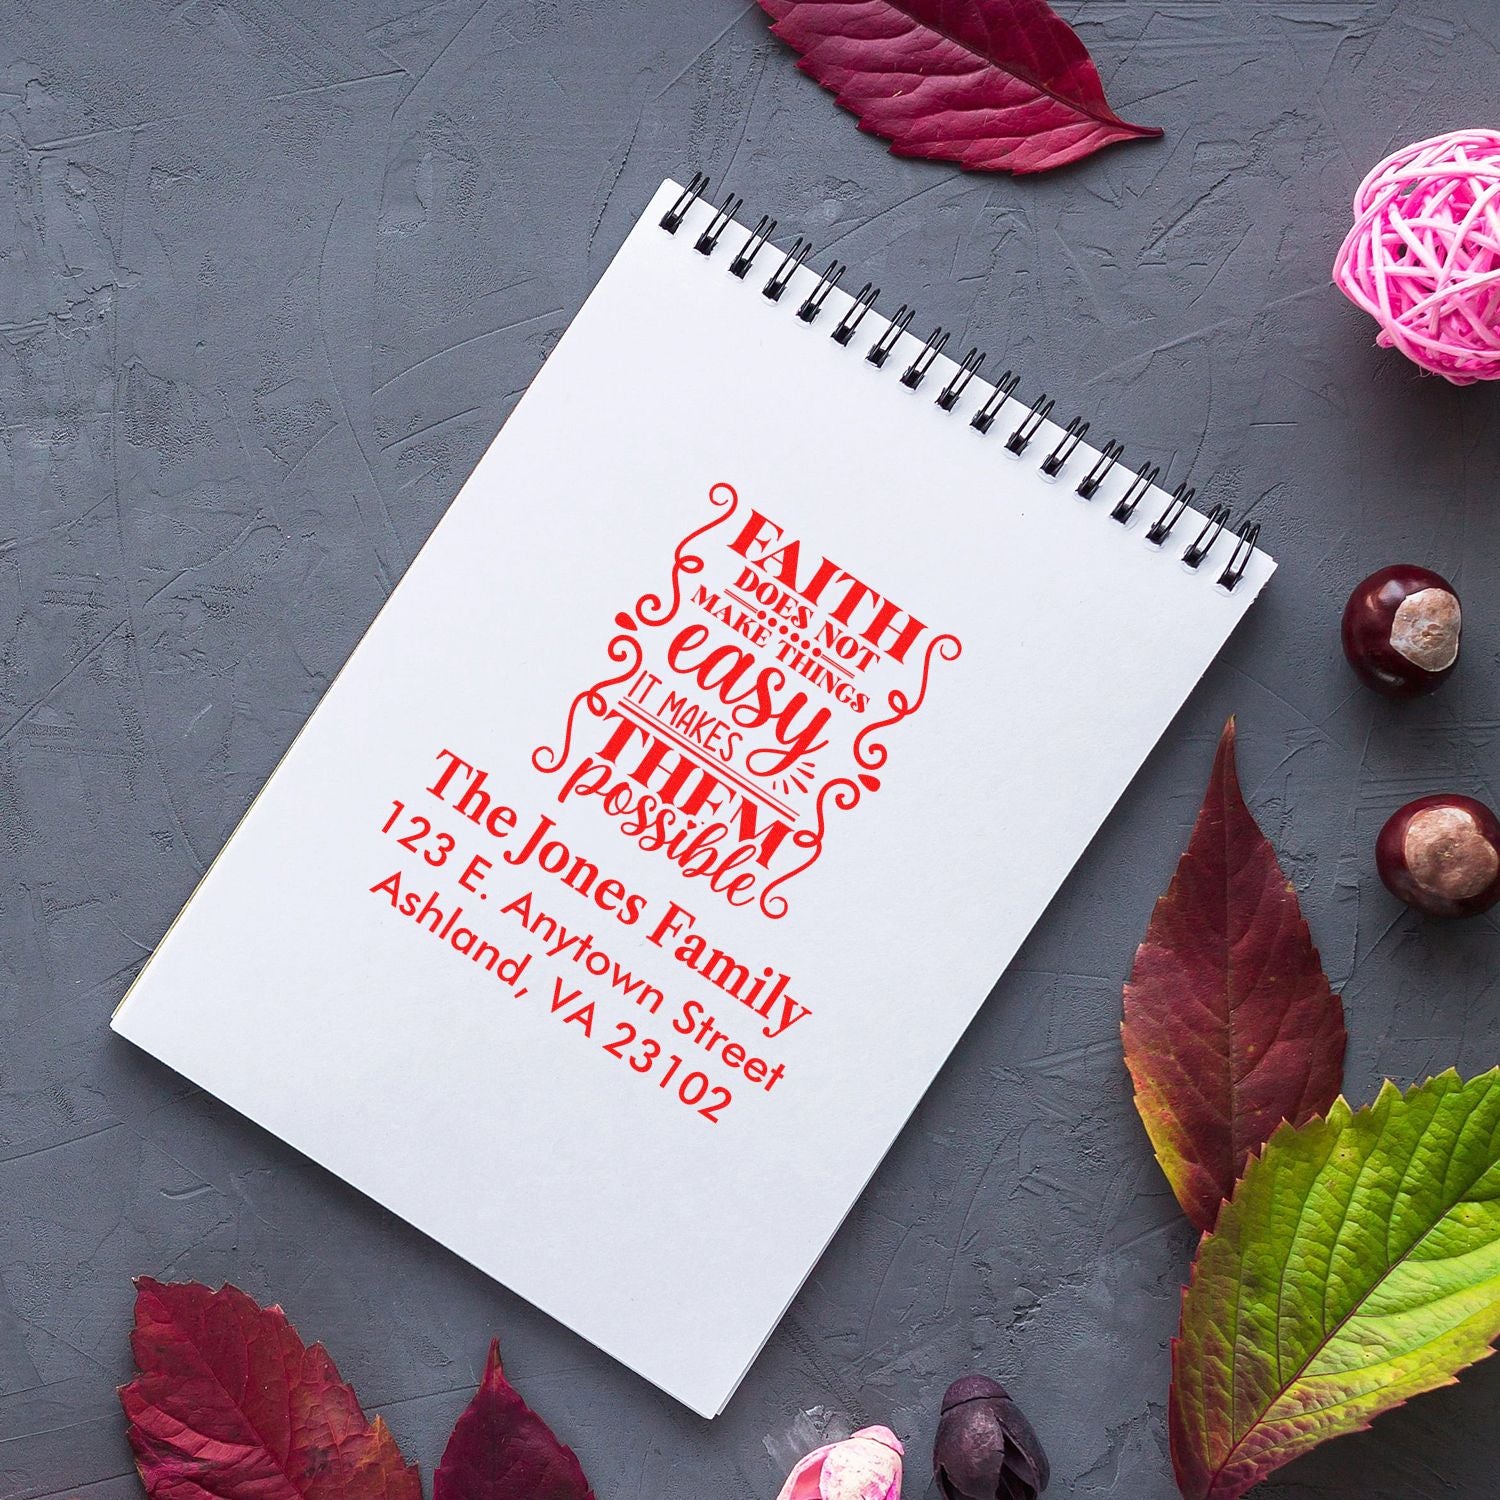 FAITH
DOES NOT
MAKE THINGS
easy
IT MAKES
THEM
possible
The Jones Family
123 E. Anytown Street
Ashland, VA 23102